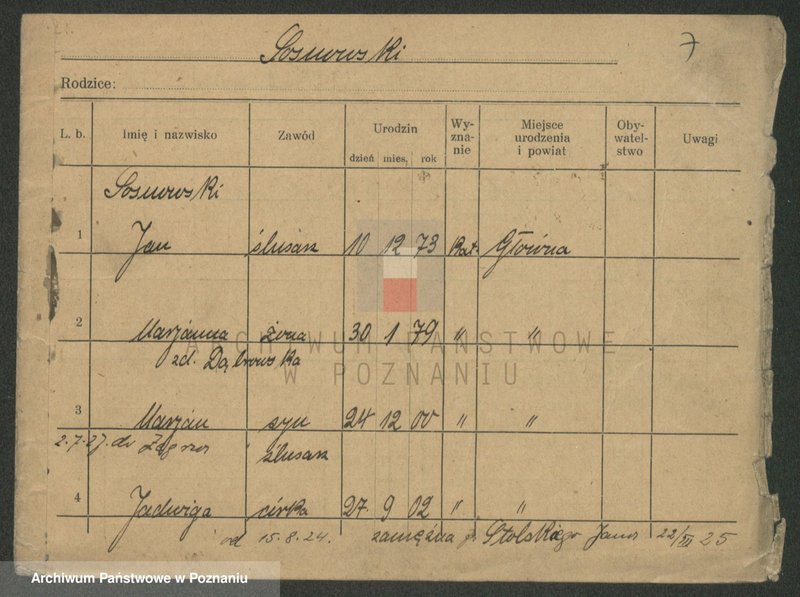 Sosnowski
7
Rodzice:
L. b. Imię i nazwisko Zawód Urodzin dzień mies. rok Wy-zna-nie Miejsce urodzenia i powiat Oby-watel-stwo Uwagi
Sosnowski
1 Jan ślusarz 10 12 73 Kat. Główna
2 Marjanna żona 30 1 79 " "
zd. Dąbrowska
ARCHIWUM PAŃSTWOWE
W POZNANIU
3 Marjan syn 24 12 00 " "
2.7.27. do ślusarz
4 Jadwiga córka 27. 9 02 " "
od 15.8.24. zamężna p. Stolskiego Jana 22/XII 25
Archiwum Państwowe w Poznaniu